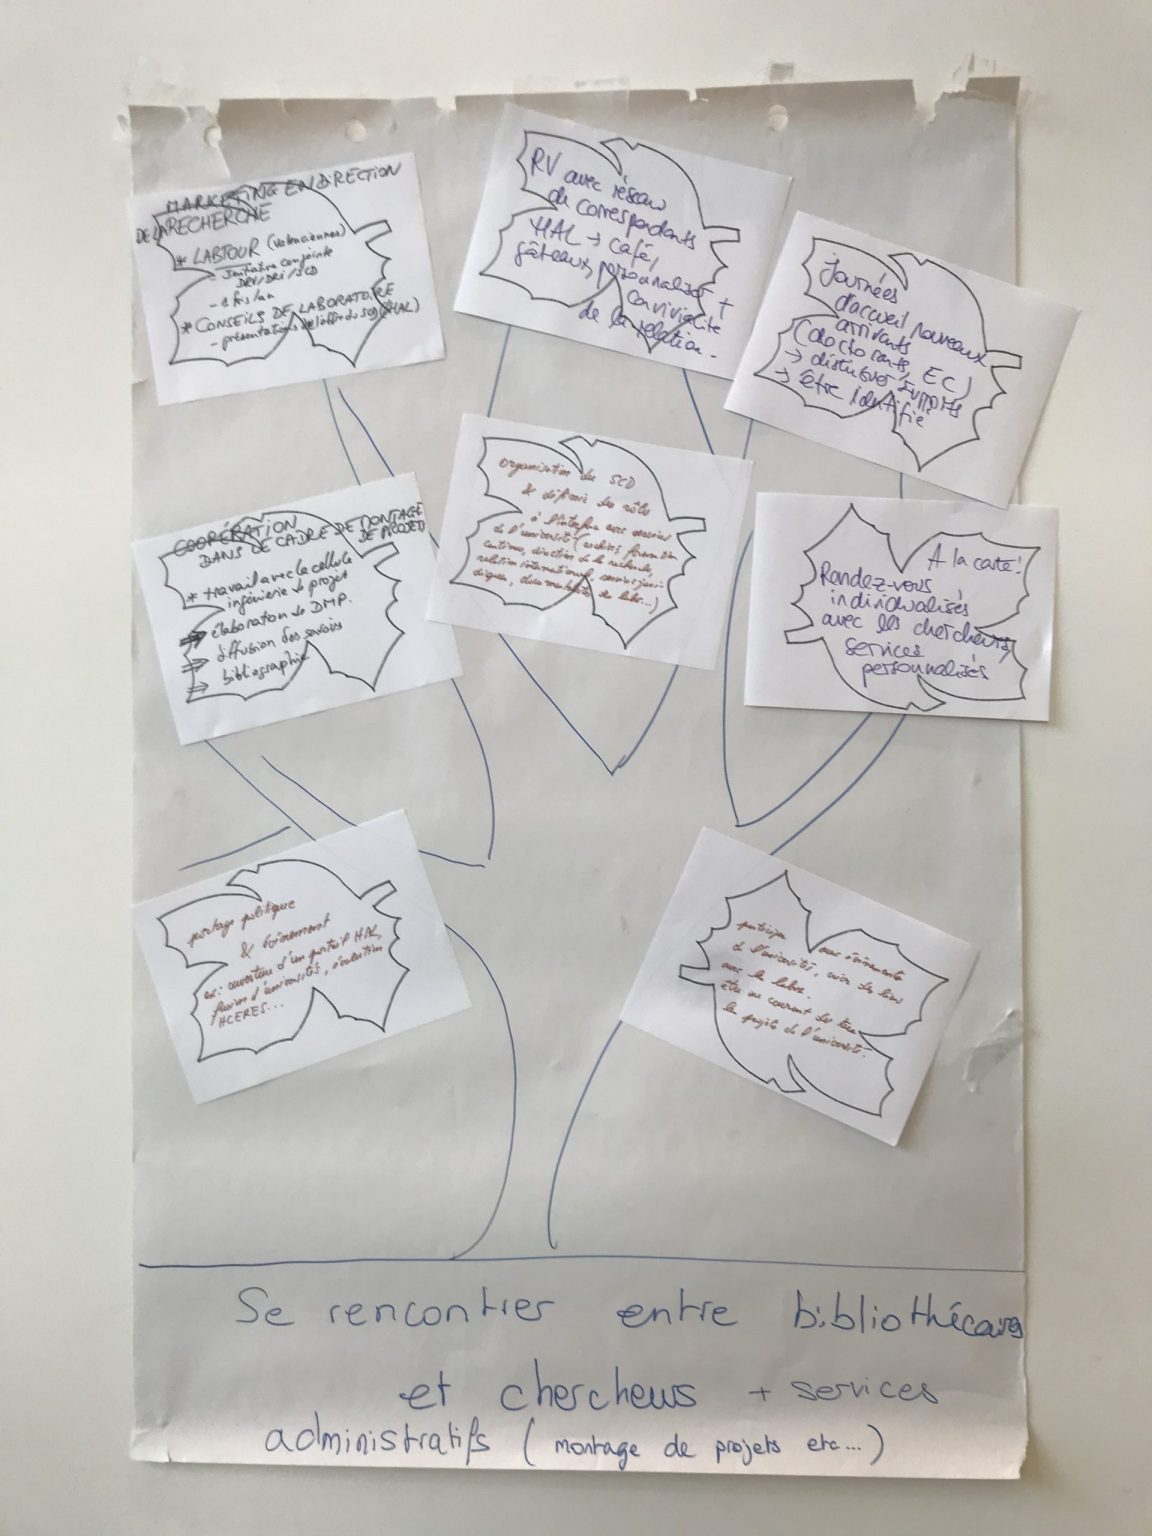 MARKETING EN DIRECTION
DE LA RECHERCHE
* LABTOUR (Valenciennes)
- Initiative conjointe
DRV/DRI/SCD
- 1 fois/an
* CONSEILS DE LABORATOIRE
- présentations de l'offre du SCD (HAL)
RV avec réseau
de correspondants
HAL → café,
gâteaux, personnaliser +
convivialité
de la relation.
Journées
d'accueil nouveaux
arrivants
(doctorants, EC)
→ distribuer supports
→ être identifié
COOPÉRATION
DANS LE CADRE DE MONTAGE
DE PROJETS
* travail avec la cellule
ingénierie de projet
⇒ élaboration de DMP.
⇒ diffusion des savoirs
⇒ bibliographie
organisation du SCD
& définir les rôles
à l'interface avec services
de l'université (archives, formation
continue, direction de la recherche,
relation internationale, services juri-
diques, documentaliste de labo...)
A la carte!
Rendez-vous
individualisés
avec les chercheurs,
services
personnalisés
portage politique
& évènement
ex: ouverture d'un portail HAL,
fusion d'universités, évaluation
HCERES...
participer aux évènements
de l'université, créer des liens
avec les labos.
être au courant de tous
les projets de l'université.
Se rencontrer entre bibliothécaires
et chercheurs + services
administratifs (montage de projets etc...)